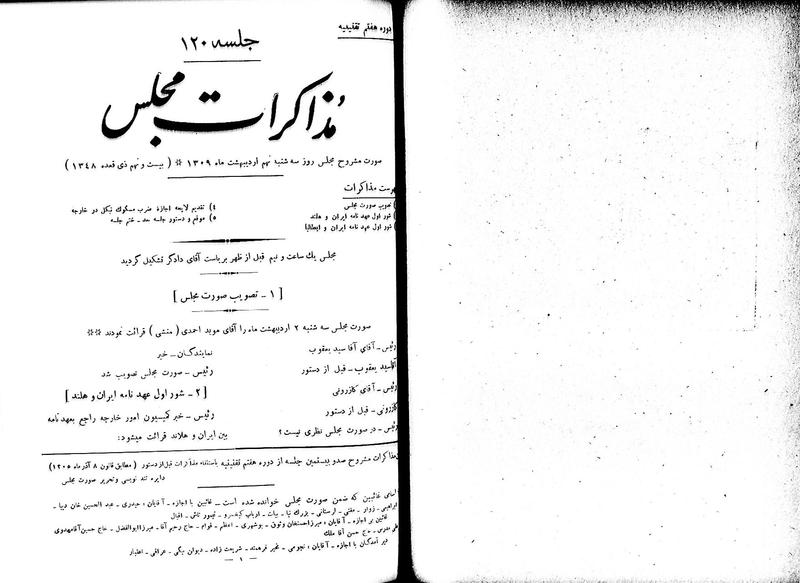 دوره هفتم تقنینیه
جلسه ۱۲۰
مذاکرات مجلس
صورت مشروح مجلس روز سه شنبه نهم اردیبهشت ماه ۱۳۰۹ * ( بیست و نهم ذی قعده ۱۳۴۸ )
فهرست مذاکرات
۱) تصویب صورت مجلس
۲) شور اول عهد نامه ایران و هلند
۳) شور اول عهد نامه ایران و ایطالیا
۴) تقدیم لایحه اجازهٔ ضرب مسکوك نیکل در خارجه
۵) موقع و دستور جلسه بعد ـ ختم جلسه
مجلس یك ساعت و نیم قبل از ظهر بریاست آقای دادگر تشکیل گردید
[ ۱ ـ تصویب صورت مجلس ]
صورت مجلس سه شنبه ۲ اردیبهشت ماه را آقای موید احمدی ( منشی ) قرائت نمودند **
رئیس ـ آقای آقا سید یعقوب
آقاسید یعقوب ـ قبل از دستور
رئیس ـ آقای کازرونی
کازرونی ـ قبل از دستور
رئیس ـ در صورت مجلس نظری نیست ؟
نمایندگان ـ خیر
رئیس ـ صورت مجلس تصویب شد
[ ۲ ـ شور اول عهد نامه ایران و هلند ]
رئیس ـ خبر کمیسیون امور خارجه راجع بعهدنامه
بین ایران و هلاند قرائت میشود:
مذاکرات مشروح صدو بیستمین جلسه از دوره هفتم تقنینیه باستثناء مذاکرات قبل از دستور ( مطابق قانون ۸ آذر ماه ۱۳۰۵ )
دایره تند نویسی و تحریر صورت مجلس
اسامی غائبین که ضمن صورت مجلس خوانده شده است ـ غائبین با اجازه ـ آقایان : حیدری ـ عبد الحسین خان دیبا ـ
زوار ـ مفتی ـ لرستانی ـ بزرك نیا ـ بیات ـ ارباب کیخسرو ـ تیمور تاش ـ اقبال
غائبین بی اجازه ـ آقایان : میرزا حسنخان وثوق ـ بوشهری ـ اعظم ـ قوام ـ حاج رحیم آقا ـ میرزا ابوالفضل ـ حاج حسین آقا مهدوی
حاج حسن آقا ملك
دیر آمدگان با اجازه ـ آقایان : نجومی ـ فرهمند ـ شریعت زاده ـ دیوان بیگی ـ عراقی ـ اعتبار
ـ ۱ ـ